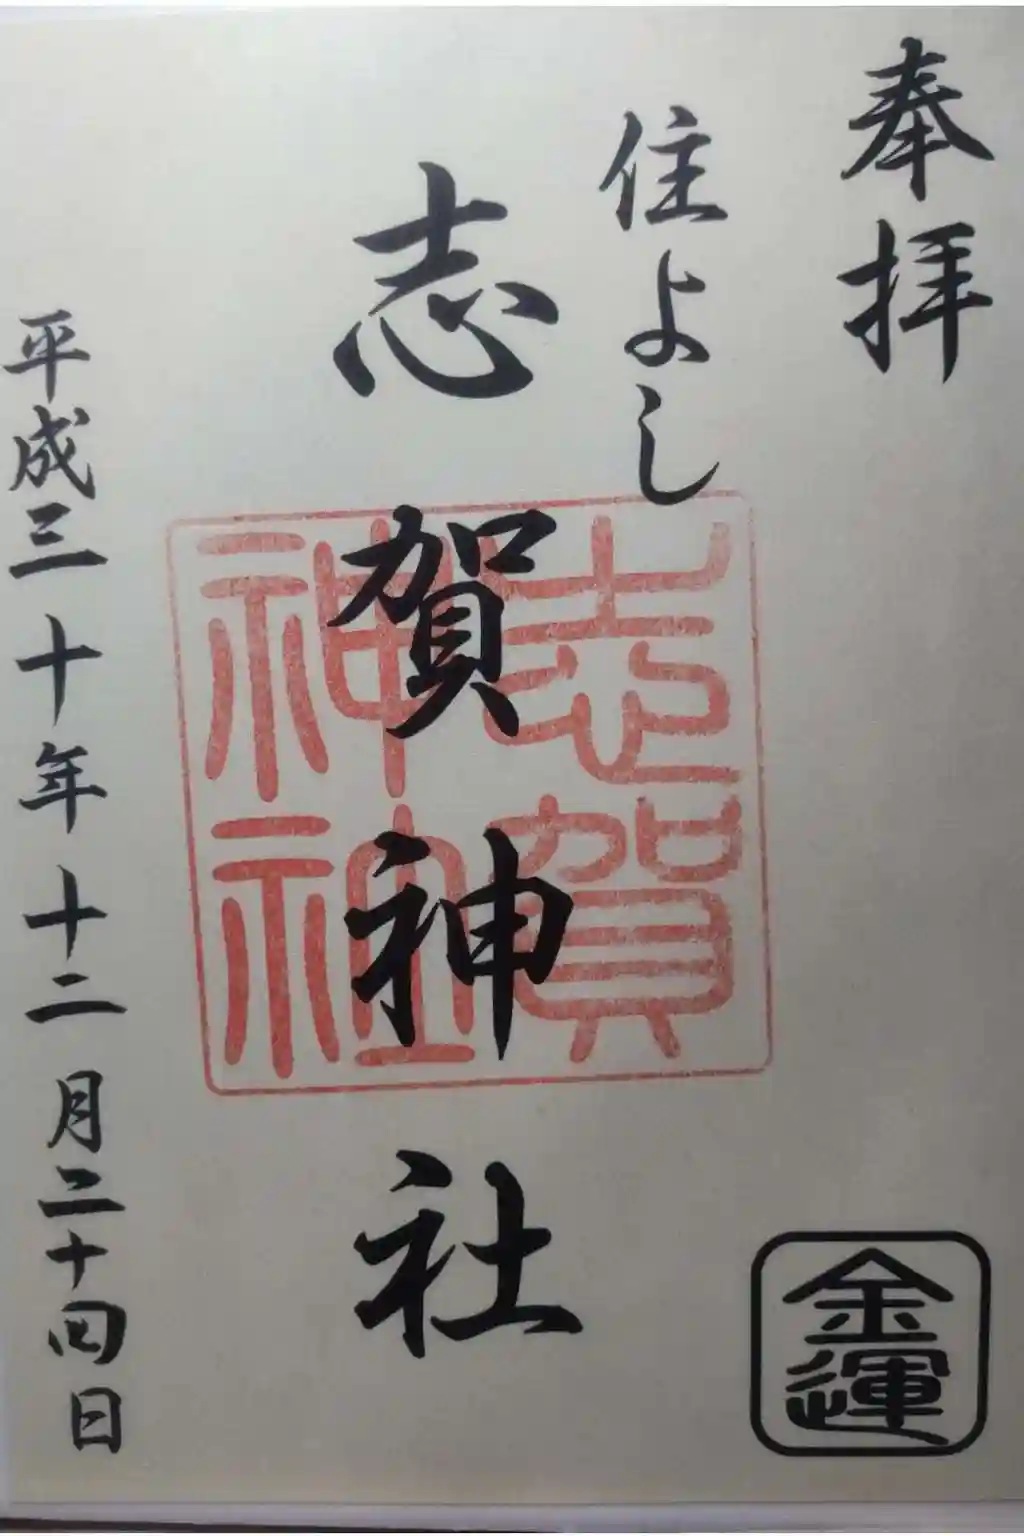 奉拝
住よし
志賀神社
志賀
神社
平成三十年十二月二十四日
金運